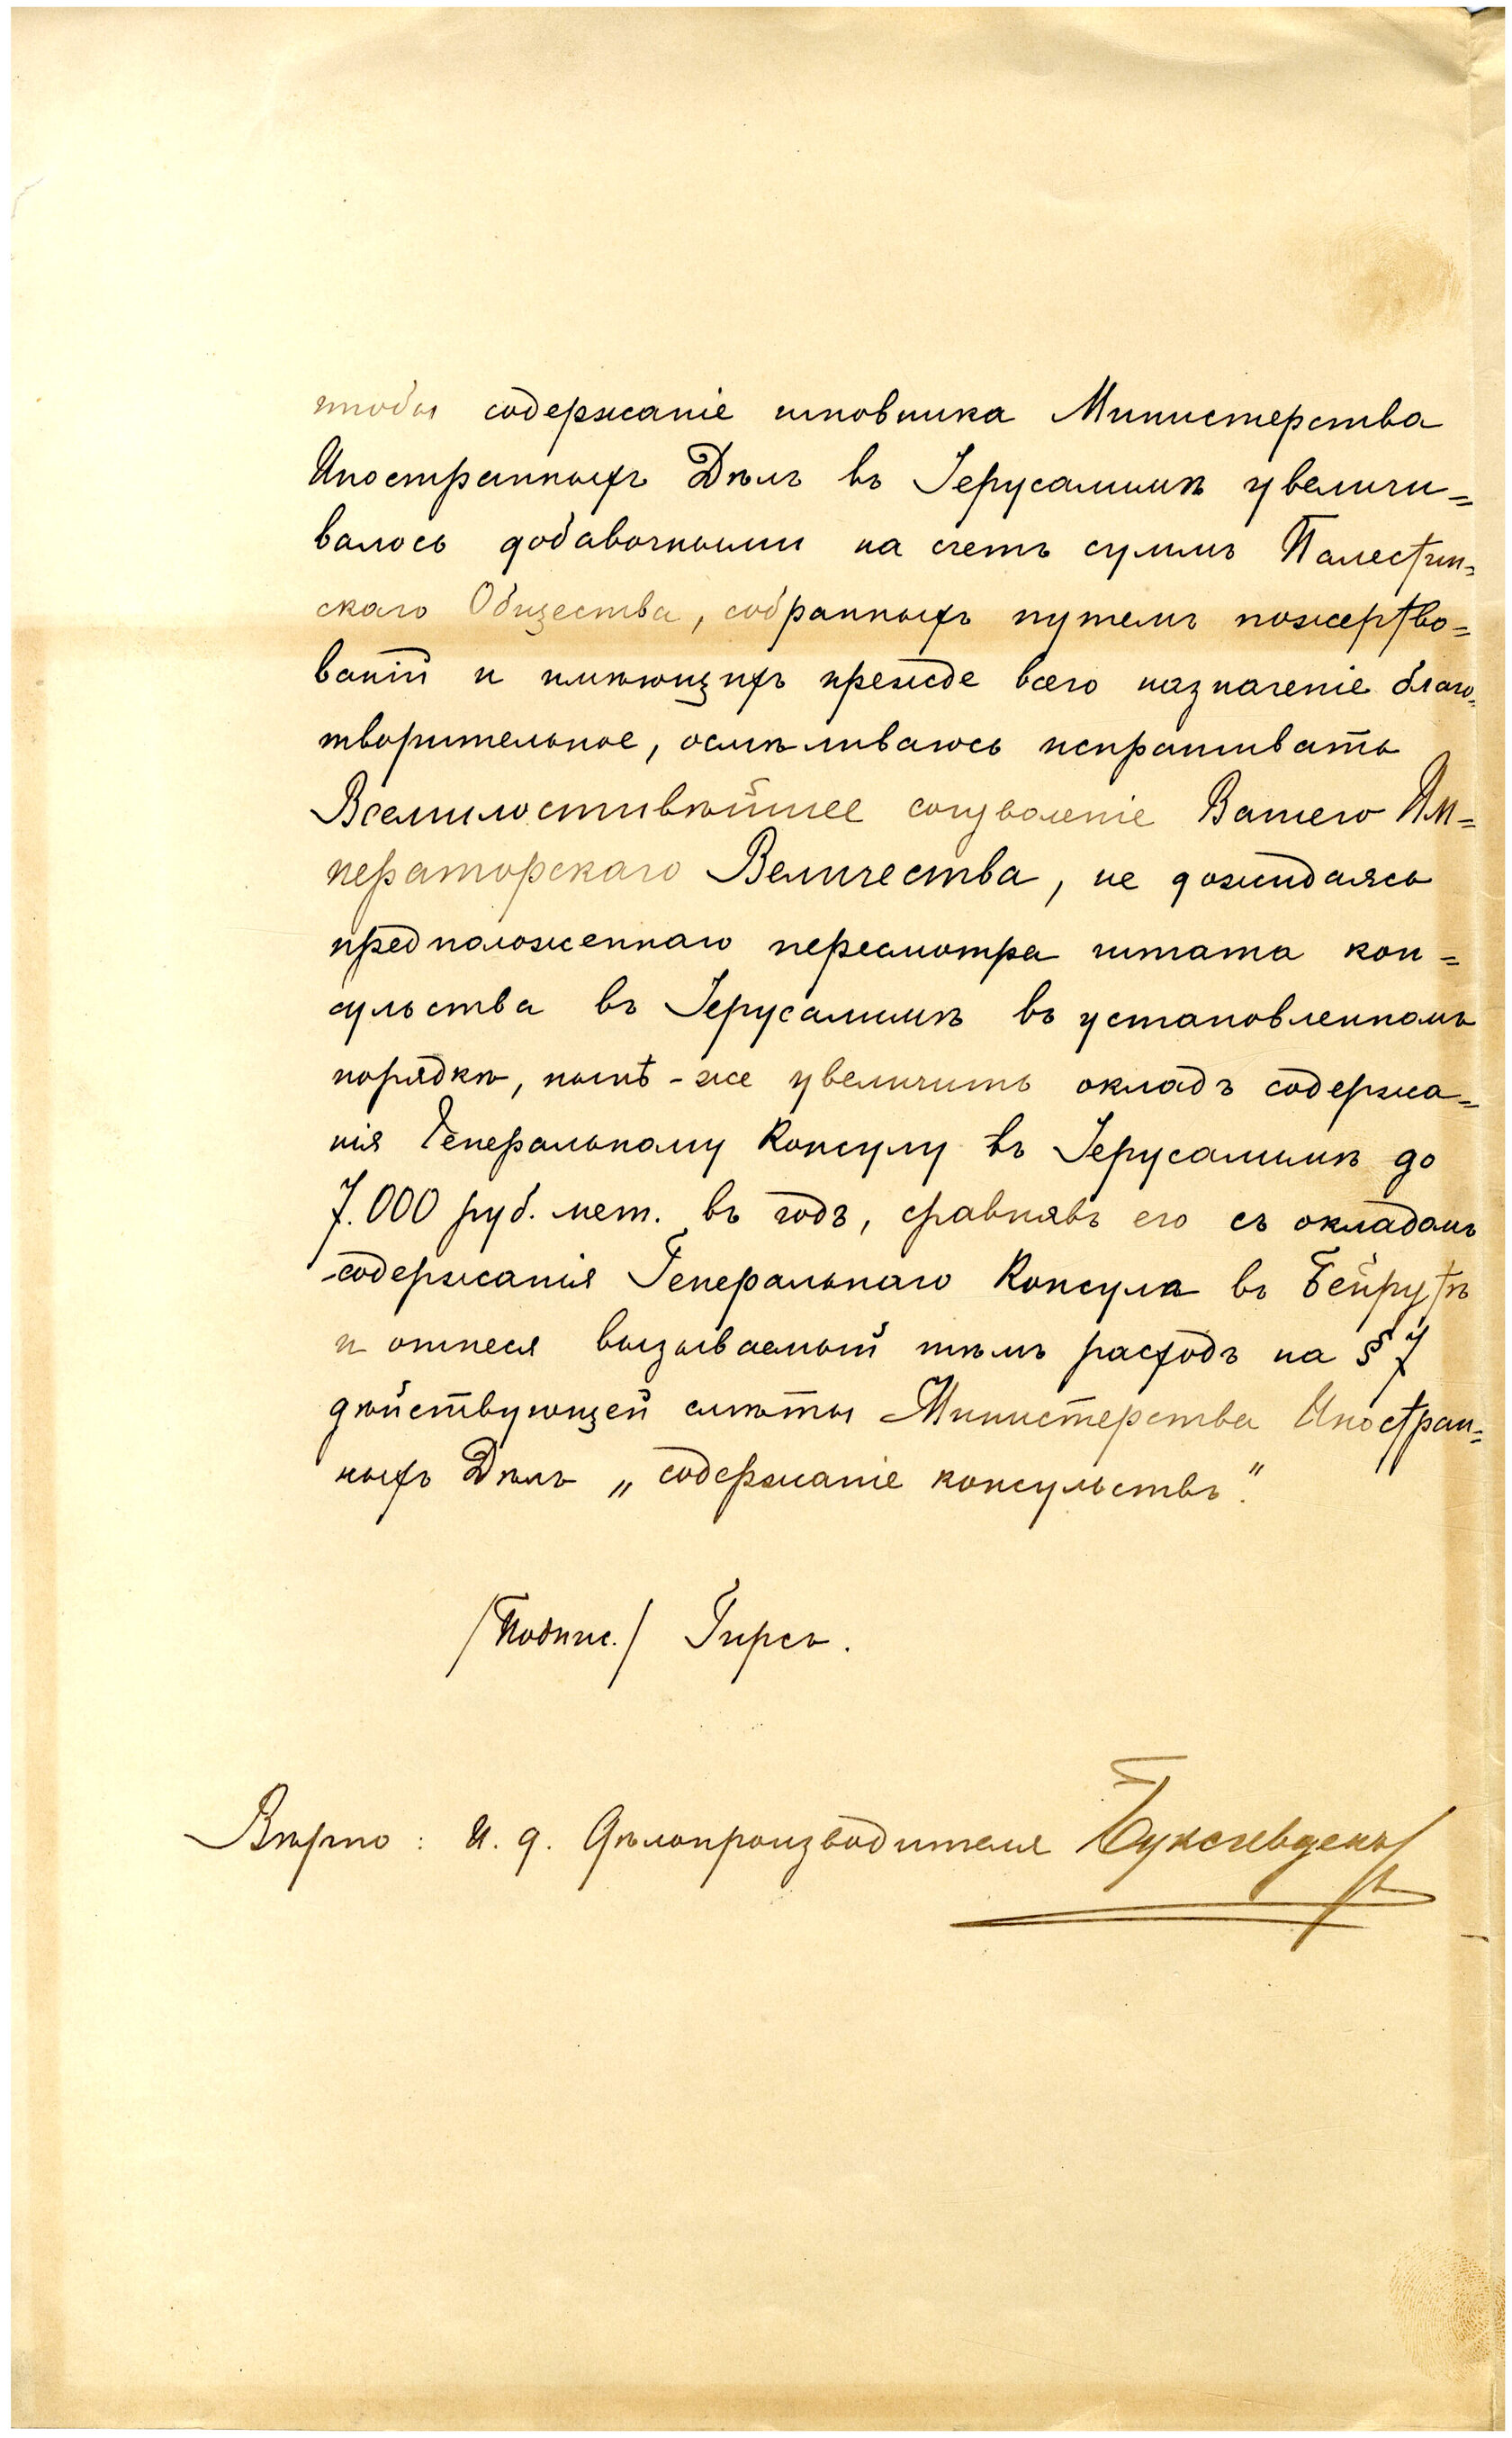 чтобы содержаніе чиновника Министерства
Иностранныхъ Дѣлъ въ Іерусалимѣ увеличи=
валось добавочными на счетъ суммъ Палестин=
скаго Общества, собранныхъ путемъ пожертво=
ваній и имѣющихъ прежде всего назначеніе благо=
творительное, осмѣливаюсь испрашивать
Всемилостивѣйшее соизволеніе Вашего Им=
ператорскаго Величества, не дожидаясь
предположеннаго пересмотра штата кон=
сульства въ Іерусалимѣ въ установленномъ
порядкѣ, нынѣ-же увеличить окладъ содержа=
нія Генеральному Консулу въ Іерусалимѣ до
7.000 руб. мет. въ годъ, сравнявъ его съ окладомъ
содержанія Генеральнаго Консула въ Бейрутѣ
и отнеся вызываемый тѣмъ расходъ на § 7
дѣйствующей смѣты Министерства Иностран=
ныхъ Дѣлъ „содержаніе консульствъ".
/Подпис./ Гирсъ.
Вѣрно: И. д. Дѣлопроизводителя Буксгевденъ